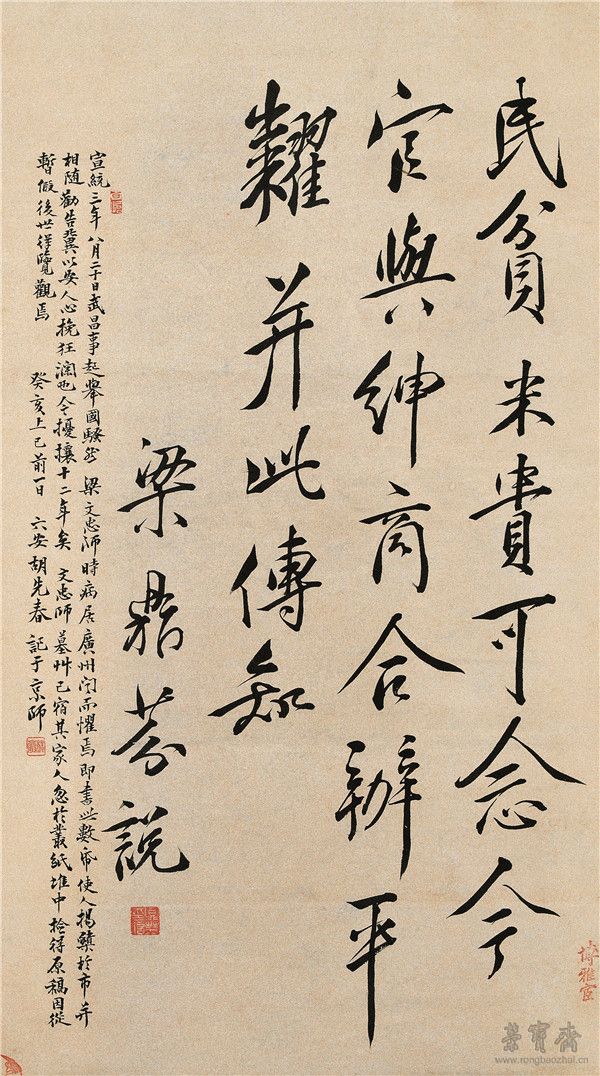 民貧米貴可念今
官與紳商合辦平
糶并此傳知
梁鼎芬說
宣統三年八月二十日武昌事起舉國騷然 梁文忠師時病居廣州聞而懼焉即書此數希使人揭櫫於市并
相隨勸告冀以安人心挽狂瀾也今擾攘十二年矣 文忠師墓艸已宿其家人忽於叢紙堆中拾得原稿因從
暫假後世得覽觀焉
癸亥上巳前一日 六安胡先春 記于京師
博雅宦
榮寶齋
www.rongbaozhai.cn